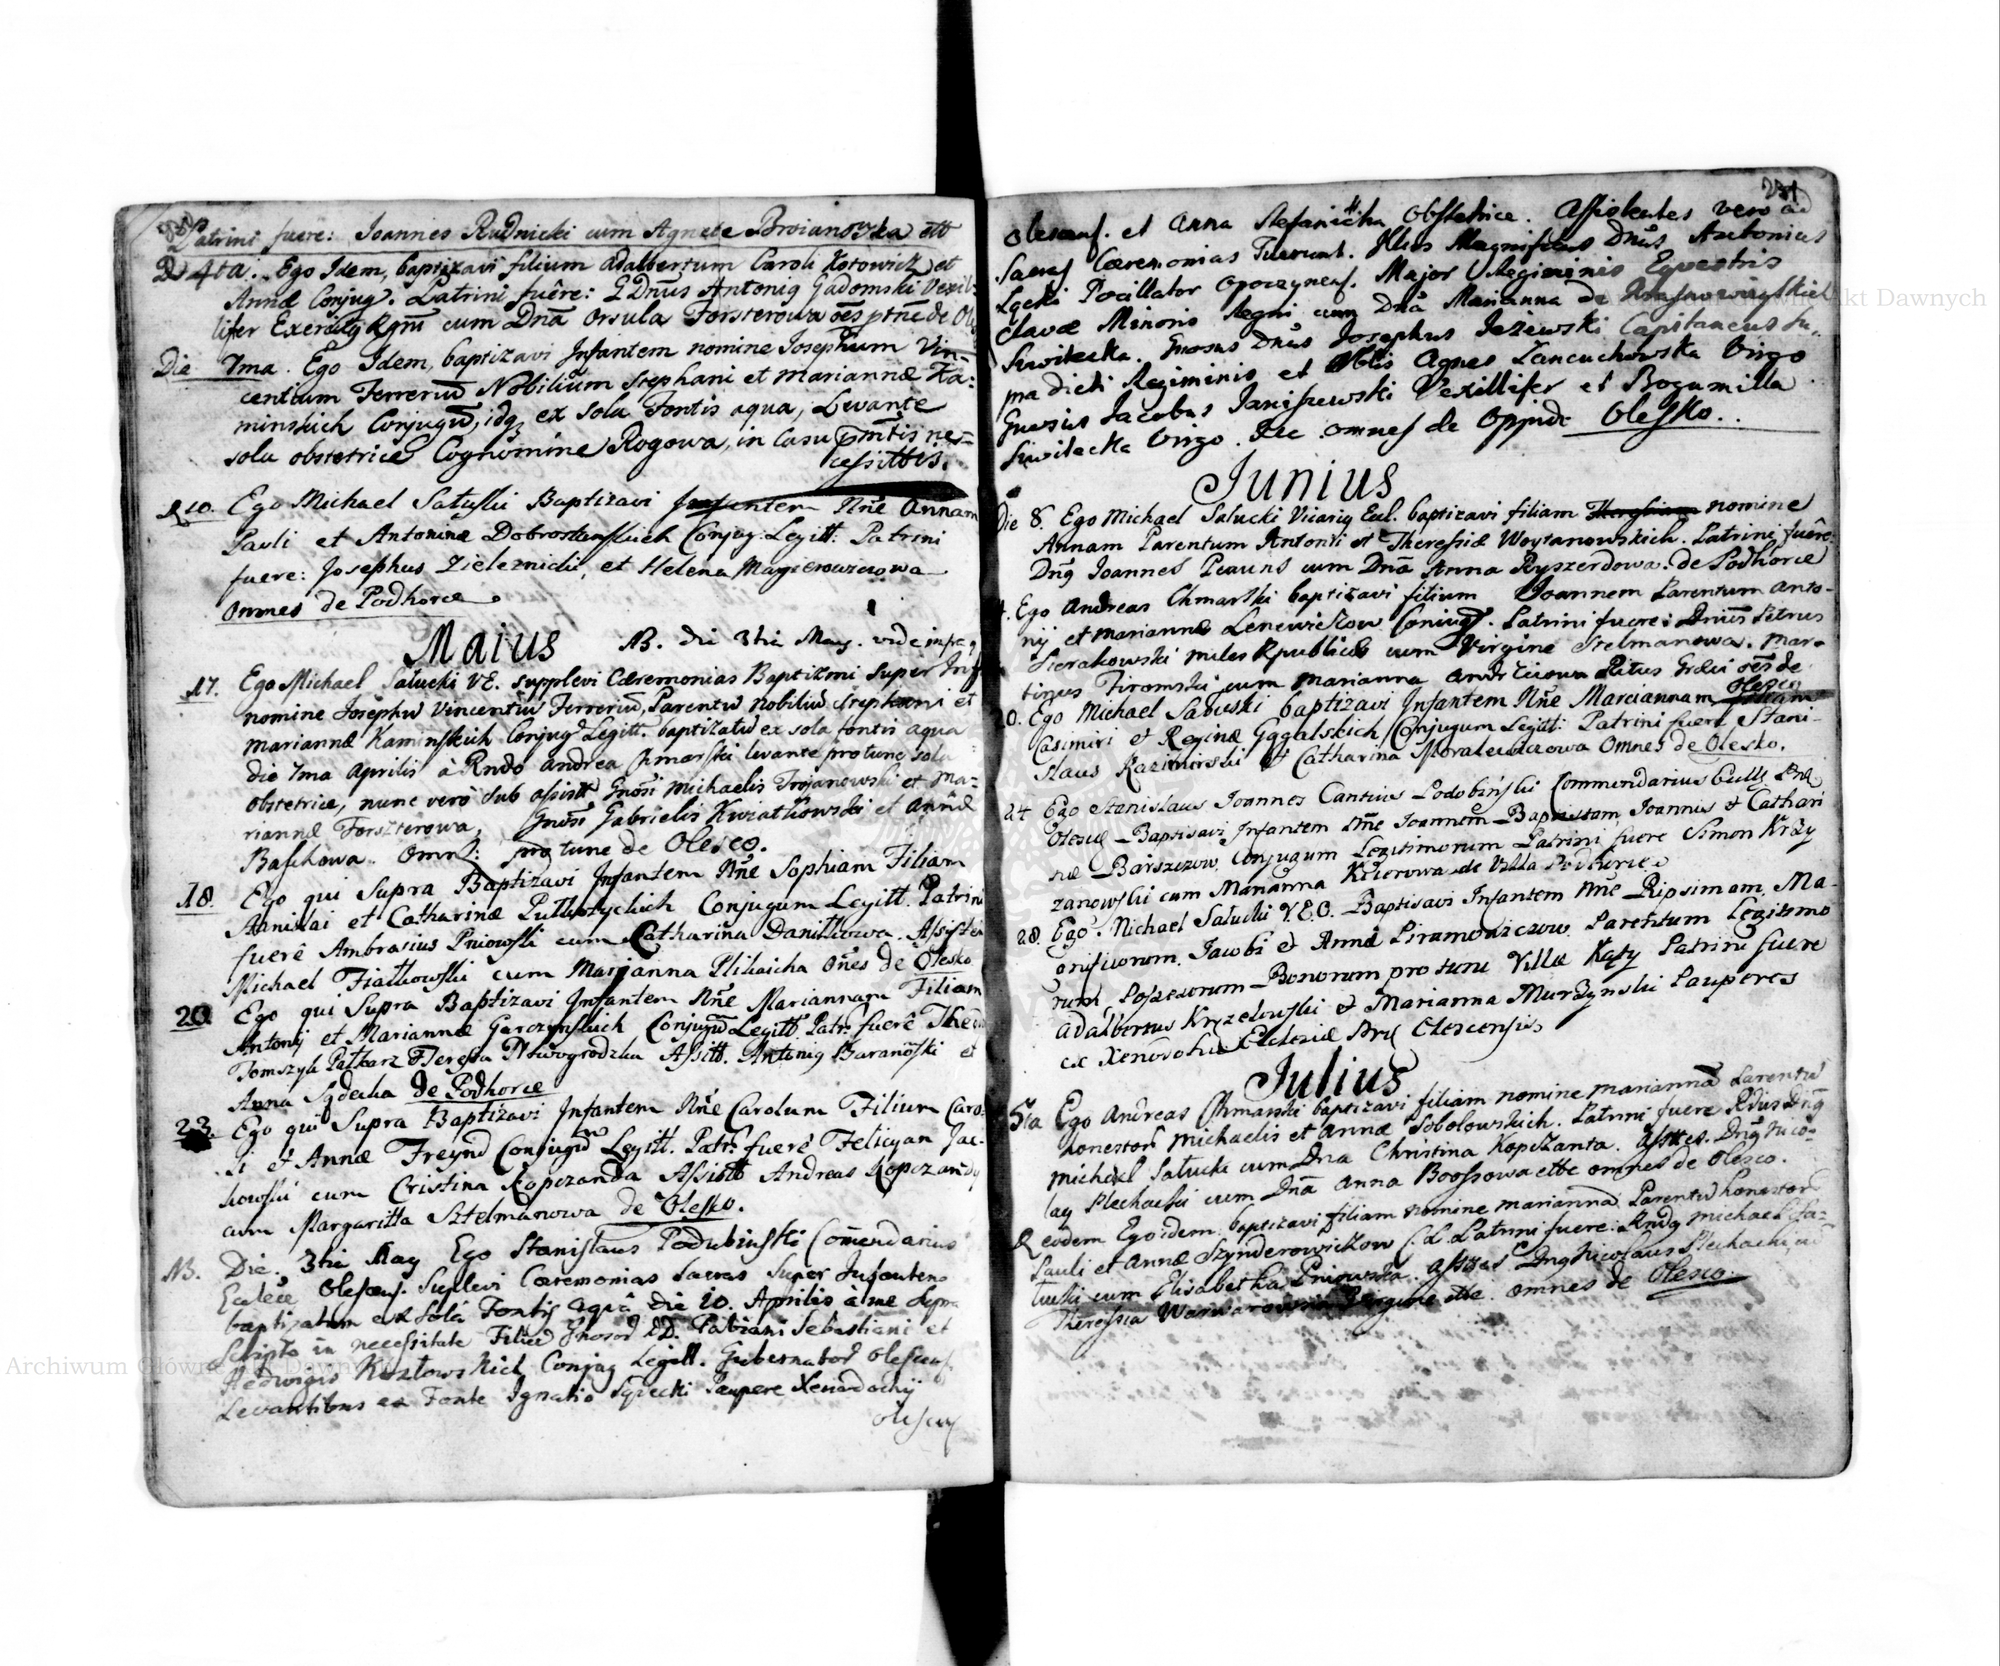 Patrini fuere: Joannes Rudnicki cum Agnete Broianowska ett
D 4ta. Ego Idem, baptizavi filium Adalbertum Caroli Kotowicz et
Annæ Conjug. Patrini fuêre: GDnus Antonig Gadomski Vexil-
lifer Exercitg Rgni cum Dnā Orsula Forsterowa oēs ptnē de Ol
Die 7ma. Ego Idem, baptizavi Infantem nomine Josephum Vin-
centium Ferreriū Nobilium Stephani et Mariannæ Ka-
minskich Conjugū, idq ex sola Fontis aqua, Levante
sola obstetrice Cognomine Rogowa, in Casu pmtis ne-
cessittis.
D 10. Ego Michael Satuski Baptizavi Infantem Nn̄e Annam
Pauli et Antoninæ Dobrostanskich Conjug: Legitt: Patrini
fuere: Josephus Zieleznicki, et Helena Magierowiczowa
omnes de Podhorce
Maius NB. die 3tia May. vide infra
17. Ego Michael Satucki VE. supplevi Cæremonias Baptizmi super Inf
nomine Josephū Vincentiū Ferreriū, Parentū nobiliū Stephani et
Mariannæ Kaminskich Conjug Legitt. baptizatū ex sola fontis aqua
die 7ma Aprilis à Rndo Andrea Chmarski levante protunc sola
obstetrice, nunc verò sub assistt Gnosi Michaelis Trojanowski et Ma-
riannæ Forszterowa, Gnosi Gabrielis Kwiatkowski et Annæ
Baskowa. Omn: protunc de Olesco.
18. Ego qui Supra Baptizavi Infantem Nn̄e Sophiam Filiam
Stanislai et Catharinæ Conjugum Legitt. Patrini
fuerê Ambrosius Pniowski cum Catharina Danitkowa. Assisten
Michael Fiatkowski cum Marjanna Oñes de Olesko
20. Ego qui Supra Baptizavi Infantem Nn̄e Mariannam Filiam
Antonij et Mariannæ Garczynskich Conjugū Legitt. Patr: fuerê
Tomszyk Teressa Nowogrodzka Assitt. Antonig Baranoski et
Anna Sądecka de Podhorce
23. Ego qui Supra Baptizavi Infantem Nn̄e Carolum Filium Caro-
li et Annæ Freynd Conjugū Legitt. Patr: fuerê Felicyan Jac-
kowski cum Cristina Kopczanda Assistt Andreas Kopczandy
cum Margaritta Sztelmanowa de Olesko.
NB. Die. 3tia May Ego Stanislaus Podubinski Comēndarius
Ecclece Olescens. Suplevi Cæremonias Sacras Super Infantem
baptizatum ex sola Fontis aquâ Die 10. Aprilis à me Supra
Scripto in necessitate Filiū Gnosor DD. Fabiani Sebastiani et
Hedwigis Kozlowskich Conjug Legitt. Gubernator Olescens.
Levantibus ex Fonte Ignatio Sądecki Paupere Xenodochij
Olescens
231
Olescens. et Anna Stefanicka Obstetrice. Assistentes vero ad
Sacras Cæremonias Fuerunt. Illus Magnificus Dnūs Antonius
Łącki Pocillator Opoczynens. Major Regiminis Equestris
Clavæ Minoris Regni cum Dnā Marianna de
Suwilecka. Gnosus Dnūs Josephus Jeżewski Capitaneus Su-
pradicti Regiminis et Agnes Łancuchowska Virgo
Gnosus Jacobus Janiszewski Vexillifer et Bogumilla
Suwilecka Virgo. Hic omnes de Oppido Olesko.
Junius
Die 8. Ego Michael Salucki Vicarig Eccl. baptizavi filiam nomine
Annam Parentum Antonii et Theressiæ Woytanowskich. Patrini fuêre
Dng Joannes cum Dnā Anna Ryszerdowa. de Podhorce
Ego Andreas Chmarski baptizavi filium Joannem Parentum Anto-
nij et Mariannæ Lenewiczow Coniug. Patrini fuere: Dnūs Petrus
Sierakowski miles Rpublicæ cum Virgine Stelmanowa. Mar-
tinus Firomski cum Marianna Ritus Græci oēs de
Olesco
20. Ego Michael Satuski baptizavi Infantem Nn̄e Mariannam filiam
Casimiri et Reginæ Gągalskich Conjugum Legitt: Patrini fuere Stani-
slaus Kazimirski et Catharina Moralewiczowa Omnes de Olesko.
24 Ego Stanislaus Joannes Cantius Podobiński Commendarius
Olesciæ Baptisavi Infantem Nn̄e Joannem Baptistam, Joannis et Cathari
næ Barszczow Conjugum Legitimorum Patrini fuere Simon Krzy
zanowski cum Marianna Kucerowa de Villa Podhorce
28. Ego. Michael Satucki V.E.O. Baptisavi Infantem Nn̄e Ripsimam, Ma-
gnificorum. Jacobi et Annæ Piramowiczow. Parentum Legitimo
rum Possesorum Bonorum pro tunc Villæ Kąty Patrini fuere
Adalbertus Kryzelowski et Marianna Murzynski Pauperes
ex Xenodochio Eclesiæ Olescensis
Julius
5ta Ego Andreas Chmarski baptizavi filiam nomine Mariannā Parentū
honestor Michaelis et Annæ Sobolowskich. Patrini fuere Rdus Dng
Michael Satucki cum Dna Christina Kopczanta. Asstes. Dng Nico-
lay Plechacki cum Dnā Anna Boossowa ettc omnes de Olesco.
D eodem Ego idem baptizavi filiam nomine Mariannā Parentū honestorū
Pauli et Annæ Szynderowiczow C.L. Patrini fuere: Rndg Michael Sa-
tucki cum Elisabetha Pniowska. Asstes Dng Nicolaus Plechacki, cū
Theressia Warwarowna Virgine ettc. omnes de Olesco.
Archiwum Główne Akt Dawnych
Archiwum Główne Akt Dawnych